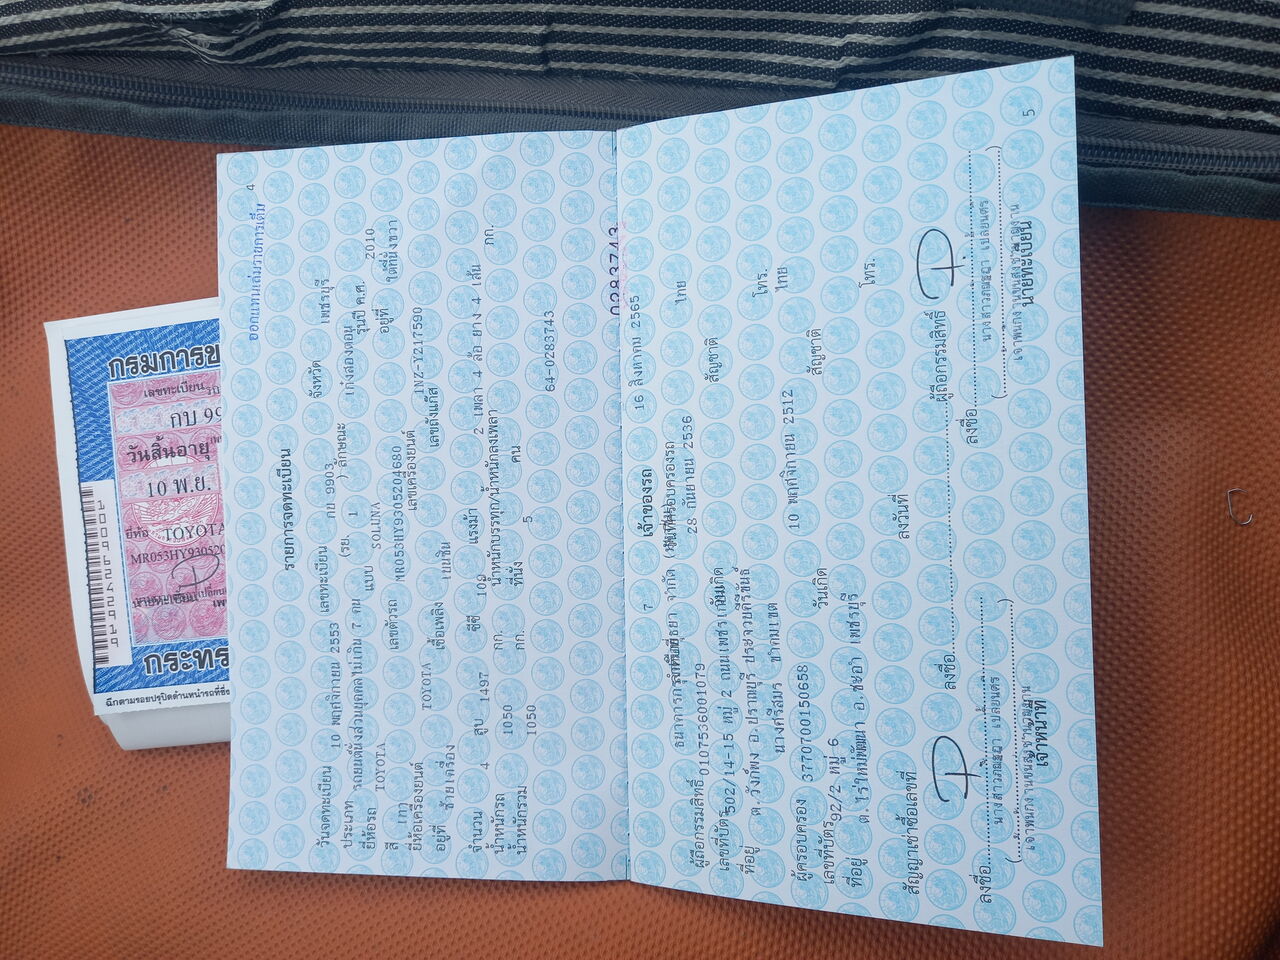 4
ออกแทนเล่มรายการเดิม
รายการจดทะเบียน
วันจดทะเบียน 10 พฤศจิกายน 2553 เลขทะเบียน กย 9903 จังหวัด เพชรบุรี
ประเภท รถยนต์นั่งส่วนบุคคลไม่เกิน 7 คน (รย. 1 ) ลักษณะ เก๋งสองตอน
ยี่ห้อรถ TOYOTA แบบ SOLUNA รุ่นปี ค.ศ. 2010
สี เทา เลขตัวรถ MR053HY9305204680 อยู่ที่ ใต้ที่นั่งขวา
ยี่ห้อเครื่องยนต์ TOYOTA เลขเครื่องยนต์ 1NZ-Y217590
อยู่ที่ ซ้ายเครื่อง เชื้อเพลิง เบนซิน เลขถังแก๊ส
จำนวน 4 สูบ 1497 ซีซี 109 แรงม้า 2 เพลา 4 ล้อ ยาง 4 เส้น
น้ำหนักรถ 1050 กก. น้ำหนักบรรทุก/น้ำหนักลงเพลา กก.
น้ำหนักรวม 1050 กก. ที่นั่ง 5 คน
64-0283743
0283743
5
7 เจ้าของรถ 16 สิงหาคม 2565
วันที่ครอบครองรถ
ผู้ถือกรรมสิทธิ์ ธนาคารกรุงศรีอยุธยา จำกัด
เลขที่บัตร 0107536001079 วันเกิด 28 กันยายน 2536 สัญชาติ ไทย
ที่อยู่ 502/14-15 หมู่ 2 ถนนเพชรเกษม
ต.วังก์พง อ.ปราณบุรี ประจวบคีรีขันธ์ โทร.
ผู้ครอบครอง นางศรีสมร ขำคมเขต
เลขที่บัตร 3770700150658 วันเกิด 10 พฤศจิกายน 2512 สัญชาติ ไทย
ที่อยู่ 92/2 หมู่ 6
ต.ไร่ใหม่พัฒนา อ.ชะอำ เพชรบุรี โทร.
สัญญาเช่าซื้อเลขที่ ลงวันที่
ลงชื่อ ผู้ถือกรรมสิทธิ์
ลงชื่อ ลงชื่อ
เจ้าพนักงานขนส่งชำนาญงาน เจ้าพนักงานขนส่งชำนาญงาน
เจ้าหน้าที่ นายทะเบียน
กรมการข
เลขทะเบียน
กบ 99
วันสิ้นอายุ
10 พ.ย.
ยี่ห้อ TOYOTA
MR053HY93052
นายทะเบียน
กระทร